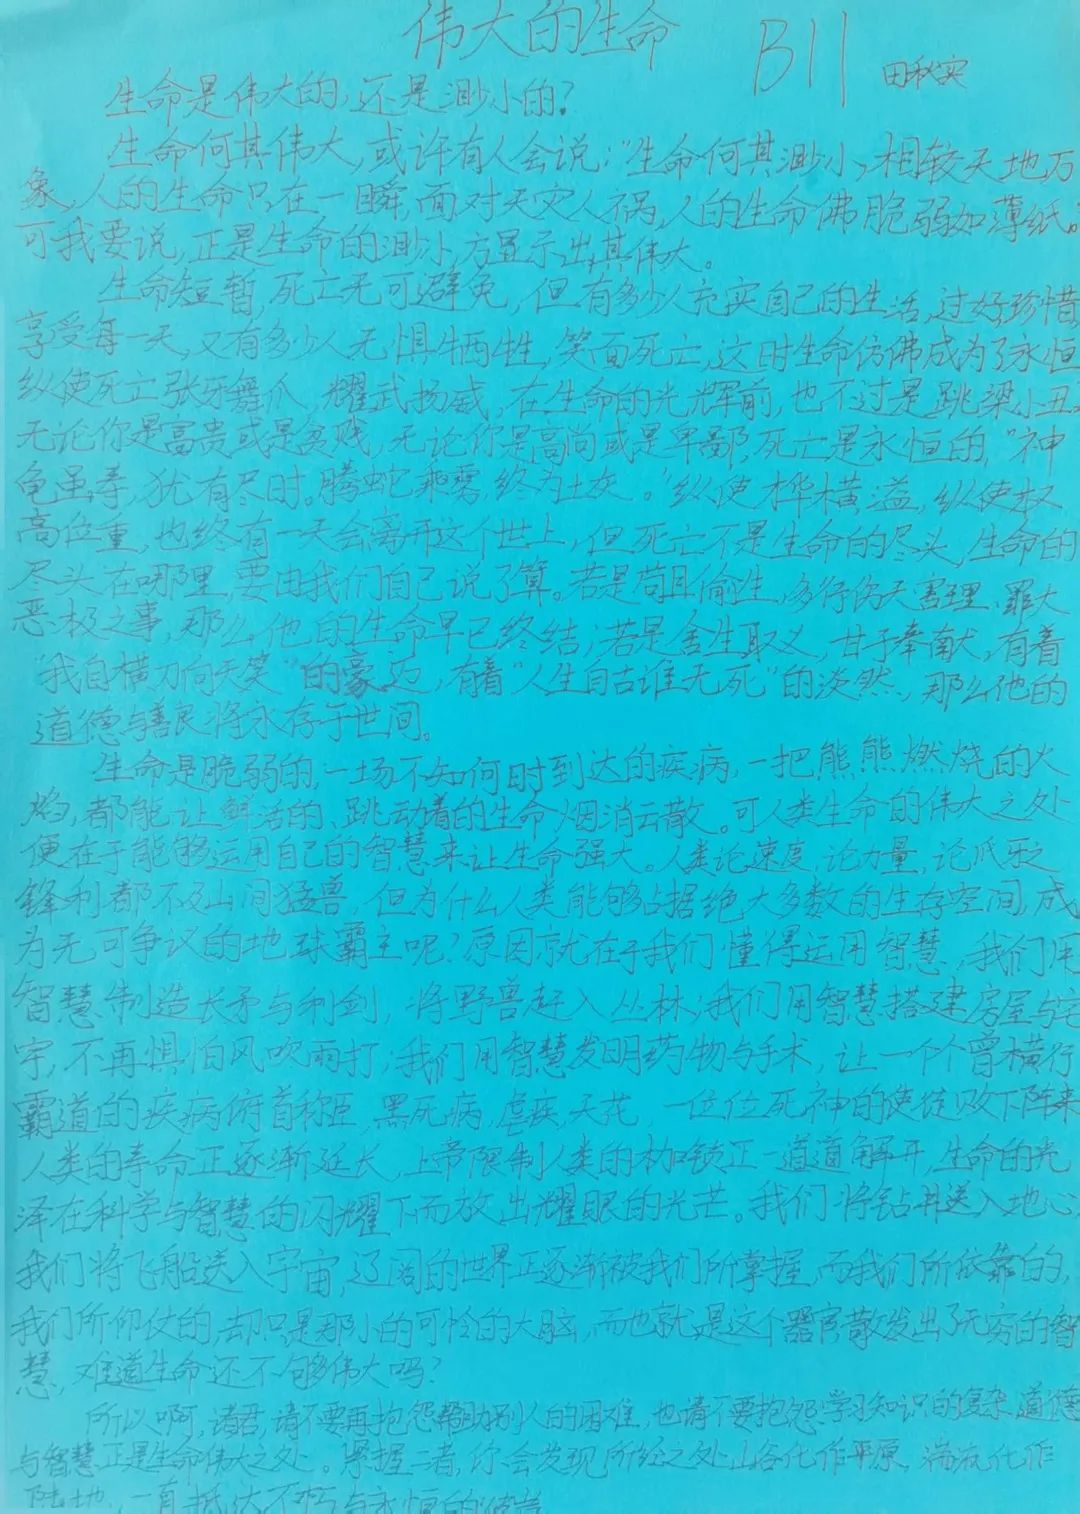 伟大的生命
B11 田秋实
生命是伟大的,还是渺小的?
生命何其伟大,或许有人会说:"生命何其渺小,相较天地万
象,人的生命只在一瞬,面对天灾人祸,人的生命佛脆弱如薄纸。"
可我要说,正是生命的渺小,方显示出其伟大。
生命短暂,死亡无可避免,但有多少人充实自己的生活,过好珍惜,
享受每一天,又有多少人无惧牺牲,笑面死亡,这时生命仿佛成为了永恒
纵使死亡张牙舞爪,耀武扬威,在生命的光辉前,也不过是跳梁小丑。
无论你是富贵或是贫贱,无论你是高尚或是卑鄙,死亡是永恒的,"神
龟虽寿,犹有尽时。腾蛇乘雾,终为土灰。"纵使才华横溢,纵使权
高位重,也终有一天会离开这个世上,但死亡不是生命的尽头,生命的
尽头在哪里,要由我们自己说了算。若是苟且偷生,多行伤天害理、罪大
恶极之事,那么他的生命早已终结;若是舍生取义,甘于奉献,有着
"我自横刀向天笑"的豪迈,有着"人生自古谁无死"的淡然,那么他的
道德与善良将永存于世间。
生命是脆弱的,一场不知何时到达的疾病,一把熊熊燃烧的火
焰,都能让鲜活的、跳动着的生命烟消云散。可人类生命的伟大之处
便在于能够运用自己的智慧来让生命强大。人类论速度,论力量,论爪牙之
锋利都不及山间猛兽,但为什么人类能够占据绝大多数的生存空间,成
为无可争议的地球霸主呢?原因就在于我们懂得运用智慧,我们用
智慧制造长矛与利剑,将野兽赶入丛林;我们用智慧搭建房屋与宅
宇,不再惧怕风吹雨打;我们用智慧发明药物与手术,让一个个曾横行
霸道的疾病俯首称臣,黑死病,虐疾,天花,一位位死神的使徒败下阵来,
人类的寿命正逐渐延长,上帝限制人类的枷锁正一道道解开,生命的光
泽在科学与智慧的闪耀下而放出耀眼的光芒。我们将钻井送入地心,
我们将飞船送入宇宙,辽阔的世界正逐渐被我们所掌握,而我们所依靠的,
我们所仰仗的,却只是那小的可怜的大脑,而也就是这个器官散发出了无穷的智
慧,难道生命还不够伟大吗?
所以啊,诸君,请不要再抱怨帮助别人的困难,也请不要抱怨学习知识的复杂,道德
与智慧正是生命伟大之处。掌握二者,你会发现所经之处山谷化作平原,湍流化作
陆地,一直抵达不朽与永恒的